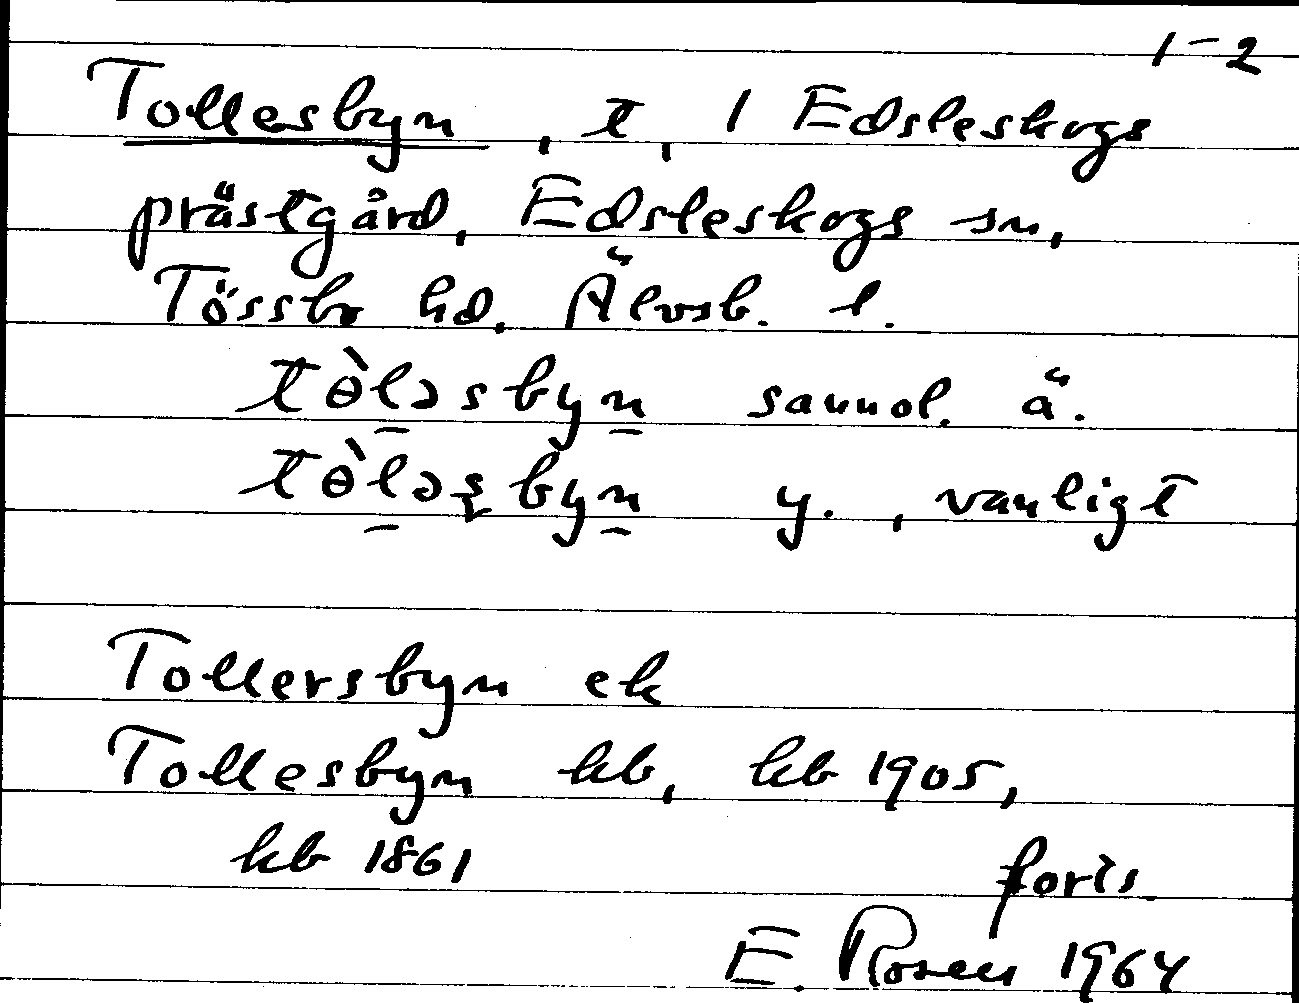 1-2
Tollesbyn, t, 1 Edsleskogs
prästgård, Edsleskogs sn,
Tössbo hd, Älvsb. l.
tɵ̀ləsbyn sannol. ä.
tɵ̀ləʂbyn y., vanligt
Tollersbyn ek
Tollesbyn kb, kb 1905,
kb 1861
forts.
E. Rosell 1964